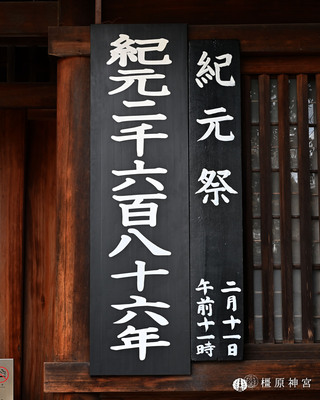 紀元二千六百八十六年
紀元祭
二月十一日
午前十一時
橿原神宮